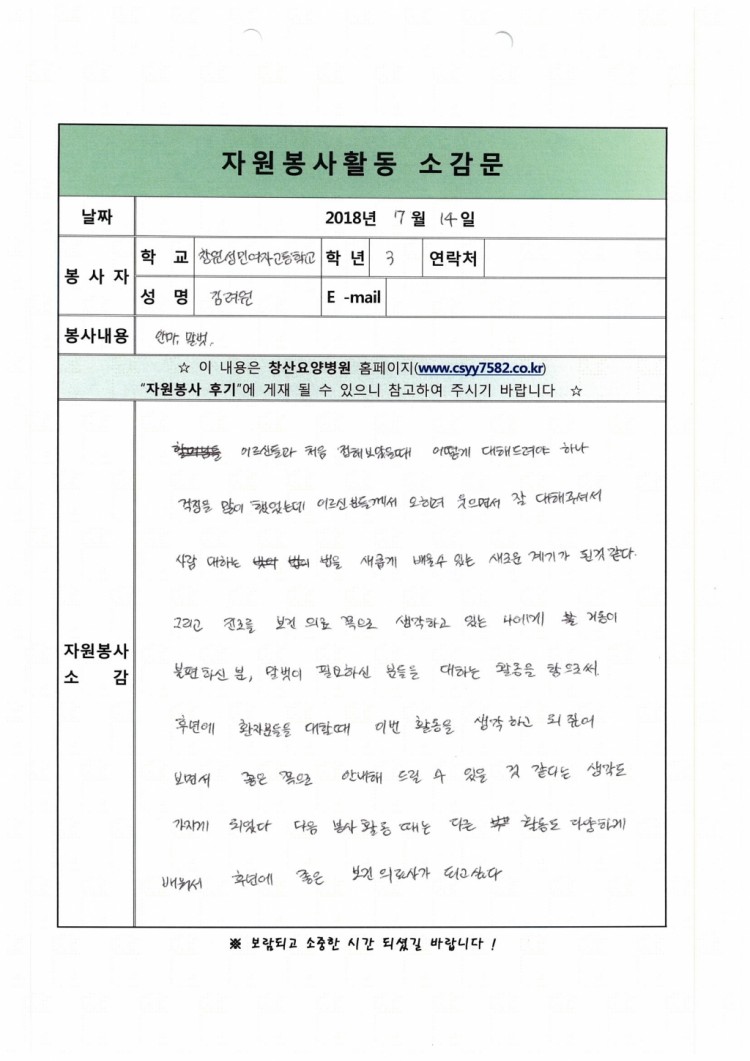 자원봉사활동 소감문
날짜 2018년 7월 14일
봉사자 학교 창원성민여자고등학교 학년 3 연락처
성명 김려원 E-mail
봉사내용 안마, 말벗,
☆ 이 내용은 창산요양병원 홈페이지(www.csyy7582.co.kr)
"자원봉사 후기"에 게재 될 수 있으니 참고하여 주시기 바랍니다 ☆
자원봉사
소 감
어르신들과 처음 접해보았을때 어떻게 대해드려야 하나
걱정을 많이 했었는데 어르신분들께서 오히려 웃으면서 잘 대해주셔서
사람 대하는 법을 새롭게 배울수 있는 새로운 계기가 된것 같다.
그리고 진로를 보건 의료 쪽으로 생각하고 있는 나에게 거동이
불편하신 분, 말벗이 필요하신 분들을 대하는 활동을 함으로써
후년에 환자분들을 대할때 이번 활동을 생각하고 되짚어
보면서 좋은 쪽으로 안내해 드릴 수 있을 것 같다는 생각도
가지게 되었다 다음 봉사활동 때는 다른 활동도 다양하게
배워서 후년에 좋은 보건의료사가 되고싶다
※ 보람되고 소중한 시간 되셨길 바랍니다 !